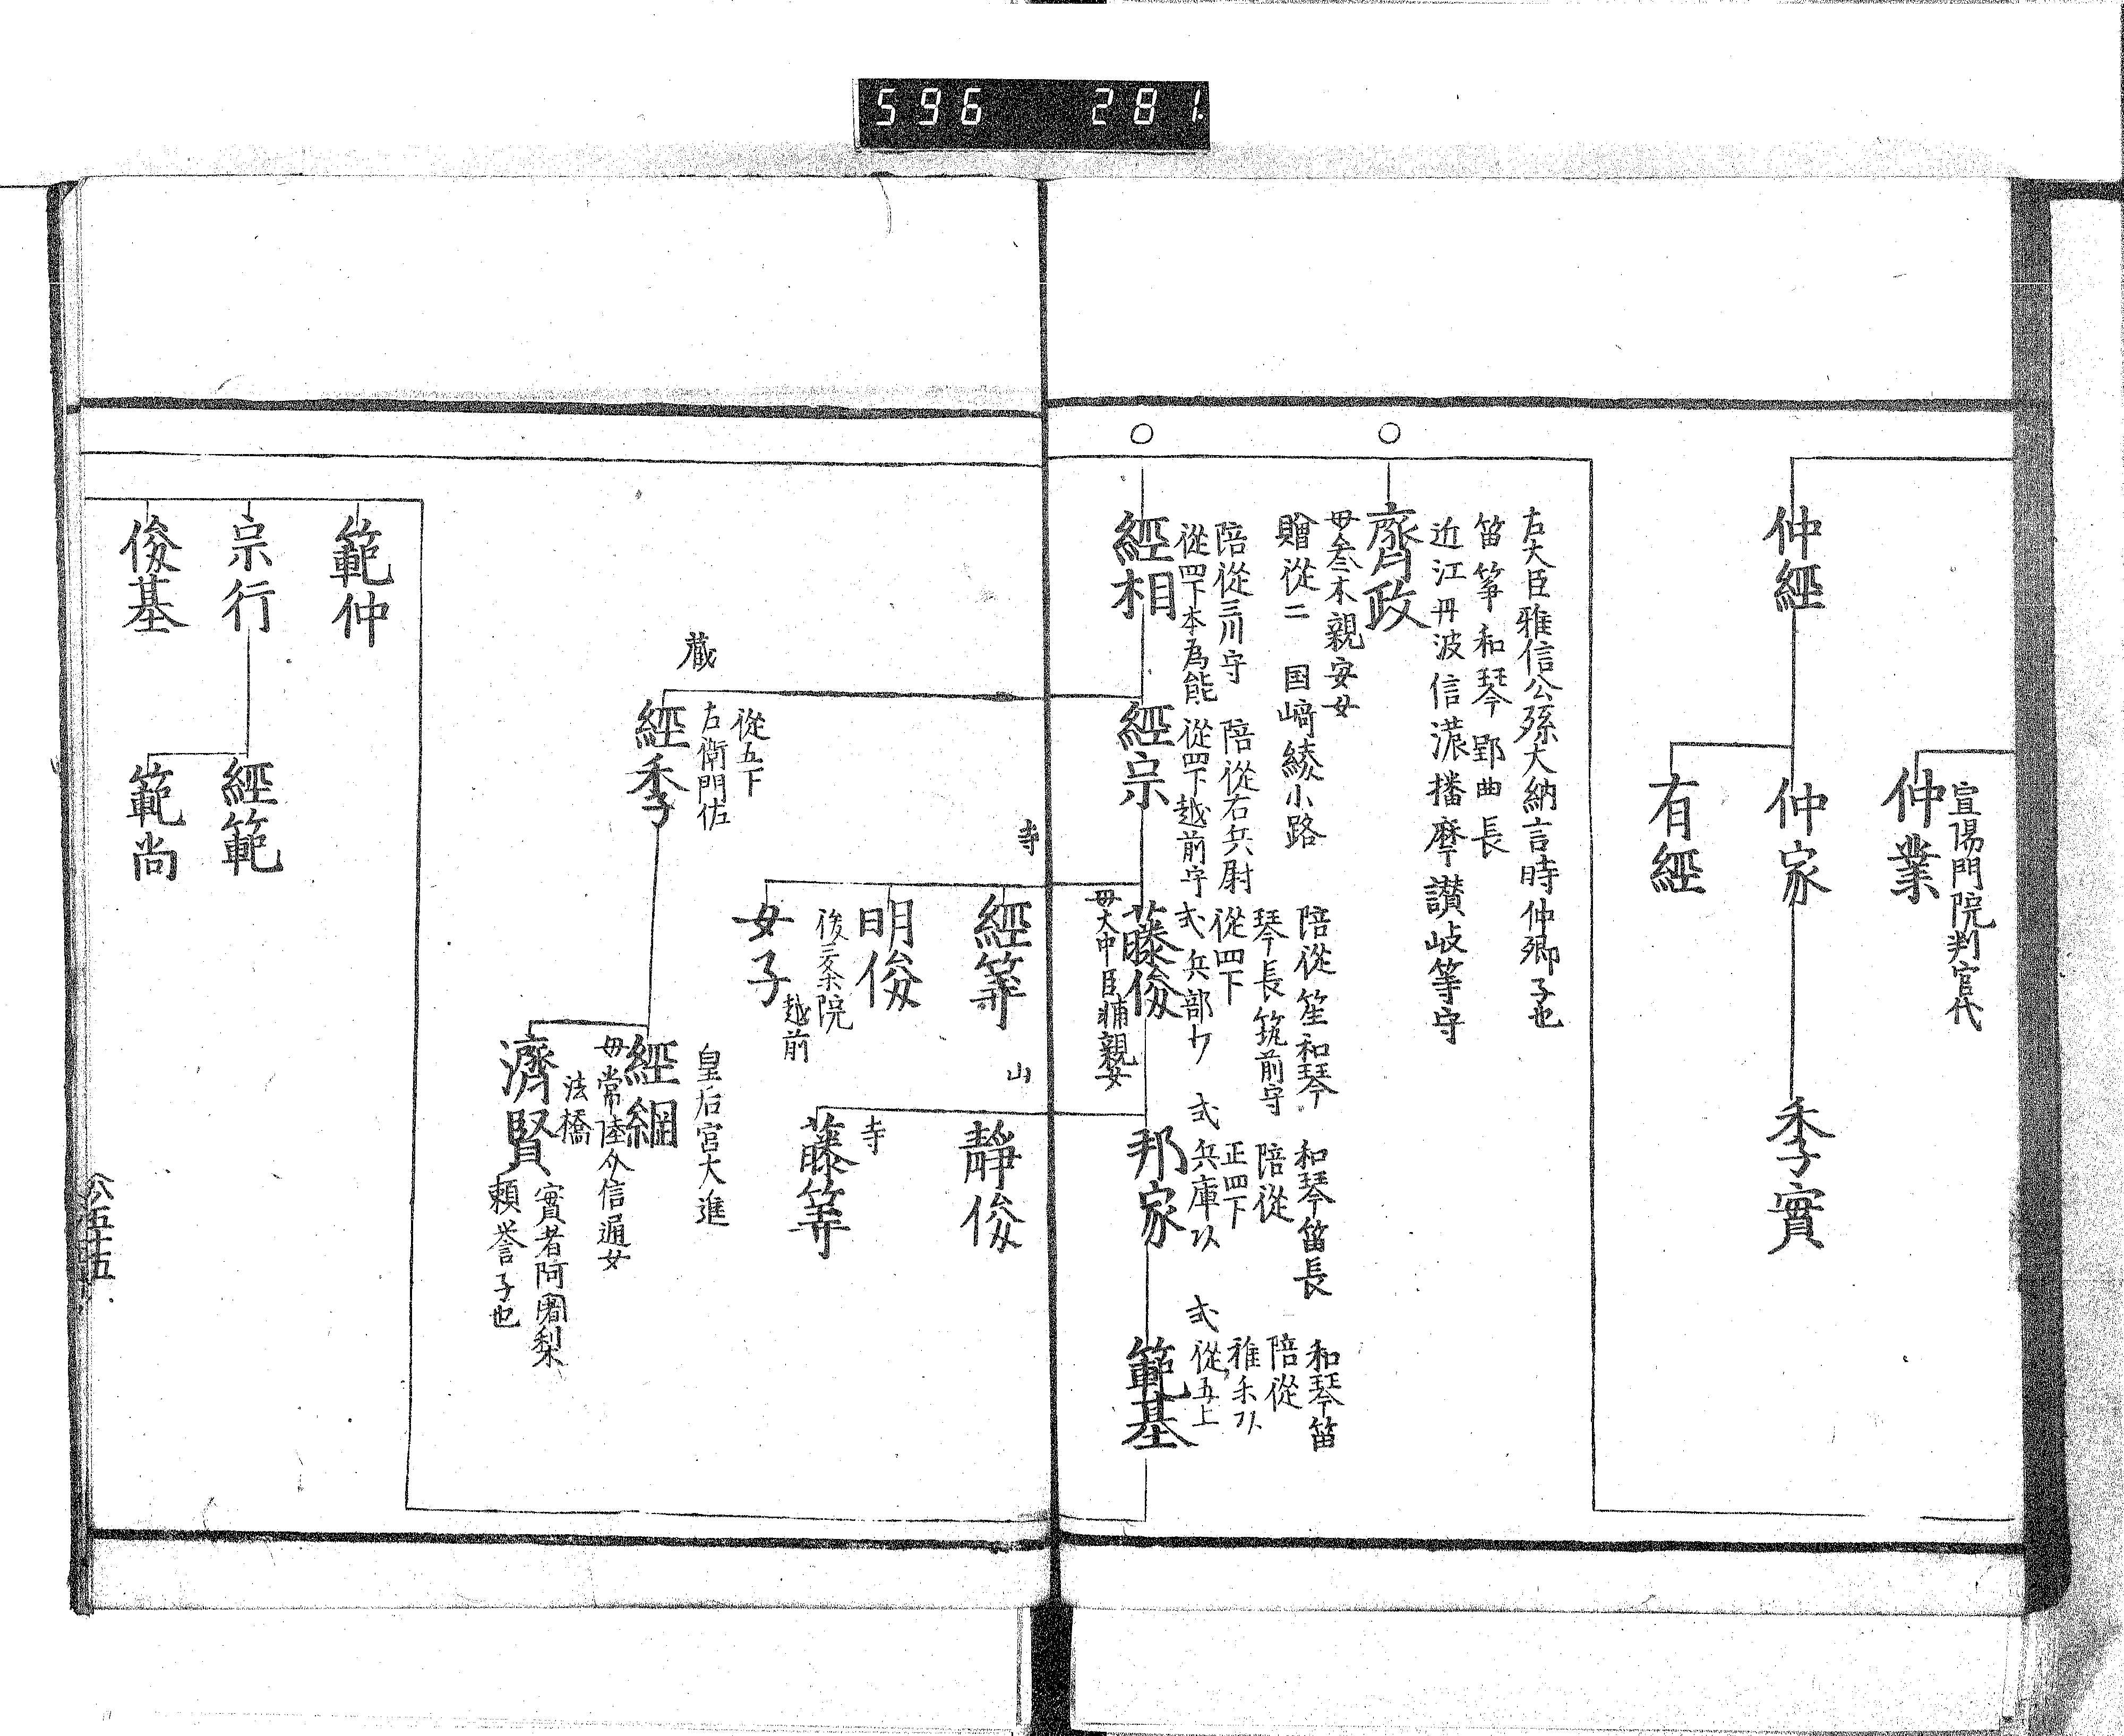 596 281
宣陽門院判官代
仲業
仲經
仲家
季實
有經
左大臣雅信公孫大納言時仲卿子也
笛箏和琴郢曲長
近江丹波信濃播磨讃岐等守
齊政
母参木親安女
贈從二 国﨑綾小路
陪從三川守
從四下本為能
經相
陪從右兵尉
從四下越前守
經宗
陪從笙和琴
琴長筑前守
從四下
式 兵部少
藤俊
母大中臣輔親女
和琴笛長
陪從
正四下
式 兵庫頭
邦家
和琴笛
陪從
雅楽頭
式 從五上
範基
寺
經筭
明俊
後三条院
越前
女子
山
靜俊
寺
藤筭
藏
從五下
右衛門佐
經季
皇后宮大進
經綱
母常陸介信通女
法橋
濟賢
實者阿闍梨
頼誉子也
範仲
宗行
經範
範尚
俊基
八五十五